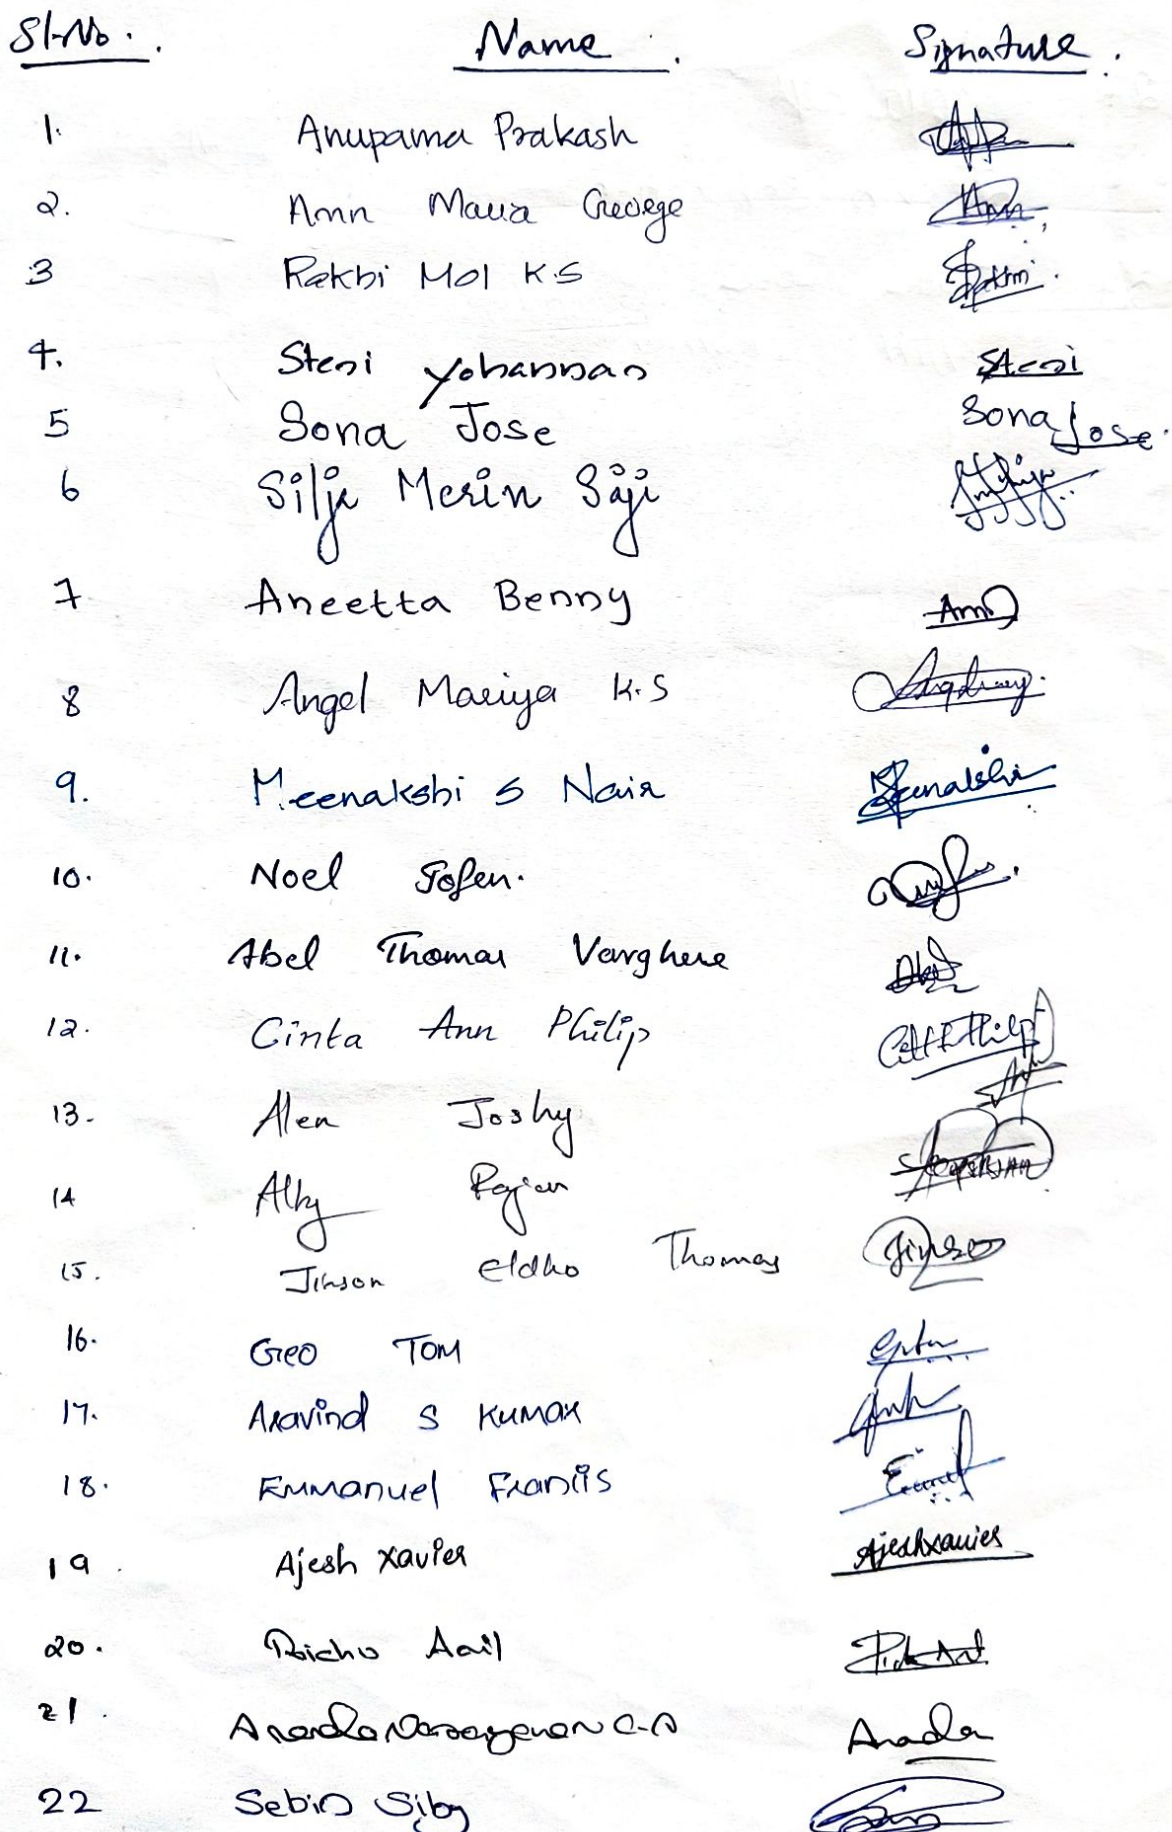 Sl.No. Name Signature
1. Anupama Prakash
2. Ann Maria George Ann
3 Rakhi Mol K.S Rakhi
4. Steni Yohannan Steni
5 Sona Jose Sona Jose.
6 Silja Merin Saji
7 Aneetta Benny
8 Angel Mariya K.S
9. Meenakshi S Nair Meenakshi
10. Noel Jofen.
11. Abel Thomas Varghese Abel
12. Cinta Ann Philip
13. Alen Joshy
14 Alby Rajan
15. Jinson Eldho Thomas Jinson
16. Geo Tom
17. Aravind S Kumar
18. Emmanuel Francis
19. Ajesh Xavier Ajeshxavier
20. Anil
21. C.A
22 Sebin Siby